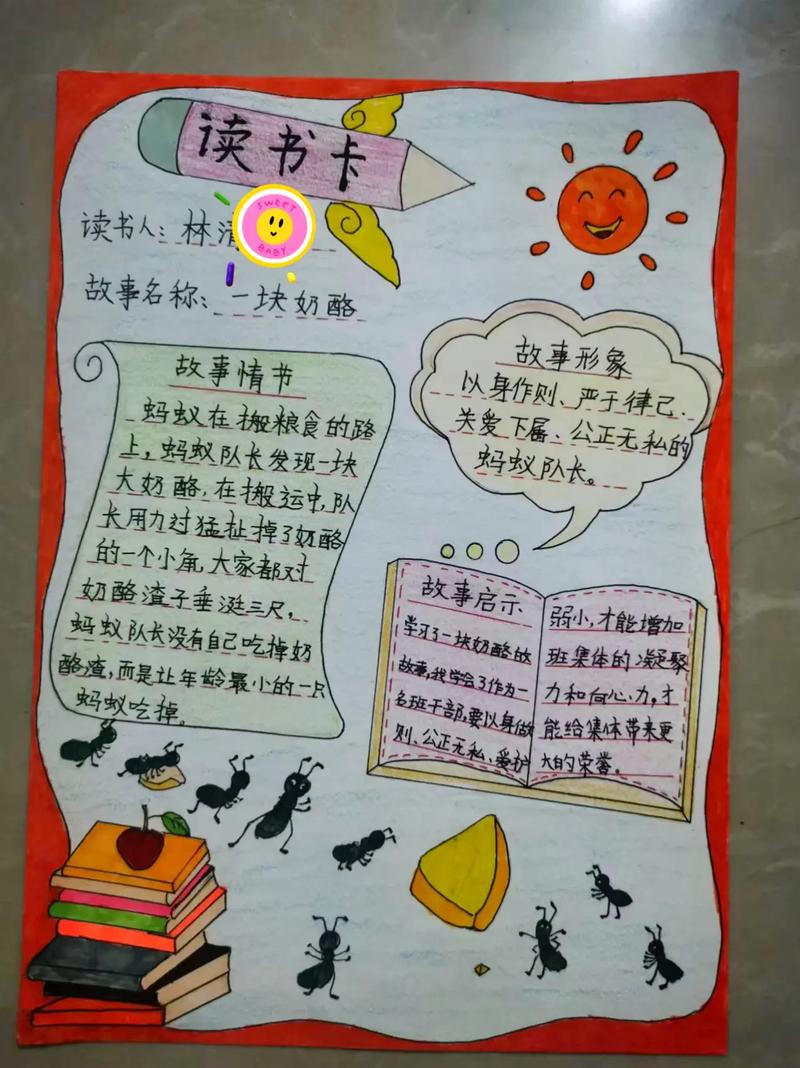 读书卡
读书人：林清
SWEET
BABY
故事名称：一块奶酪
故事情节
蚂蚁在搬粮食的路
上，蚂蚁队长发现一块
大奶酪，在搬运中，队
长用力过猛扯掉了奶酪
的一个小角，大家都对
奶酪渣子垂涎三尺，
蚂蚁队长没有自己吃掉奶
酪渣，而是让年龄最小的一只
蚂蚁吃掉。
故事形象
以身作则、严于律己、
关爱下属、公正无私的
蚂蚁队长。
故事启示
学习了一块奶酪的
故事，我学会了作为一
名班干部，要以身做
则、公正无私、爱护
弱小，才能增加
班集体的凝聚
力和向心力，才
能给集体带来更
大的荣誉。